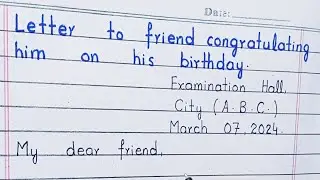 Date:
Letter to friend congratulating
him on his birthday.
Examination Hall,
City (A.B.C.)
March 07, 2024.
My dear friend,